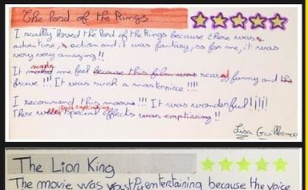 The Lord of the Rings
I really loved the lord of the Rings because there was
adventure, action and it was fantasy, so for me, it was
very very amazing!!
It me feel because this film was and funny and
brave!!! It was such a masterpiece!!!
I recommend this !!! It was wonderful!!!!
There special effects was !!!
Lisa
The Lion King
The movie was entertaining because the voice